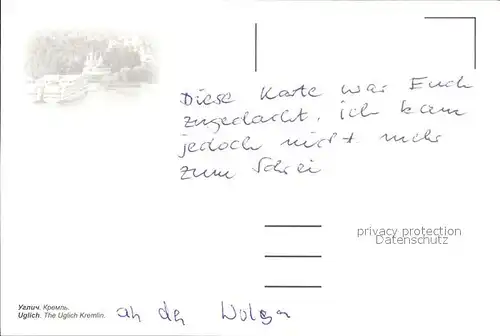 Diese Karte war Euch
zugedacht, ich kam
jedoch nicht mehr
zum Schrei
privacy protection
Datenschutz
Углич. Кремль.
Uglich. The Uglich Kremlin.
an der Wolga